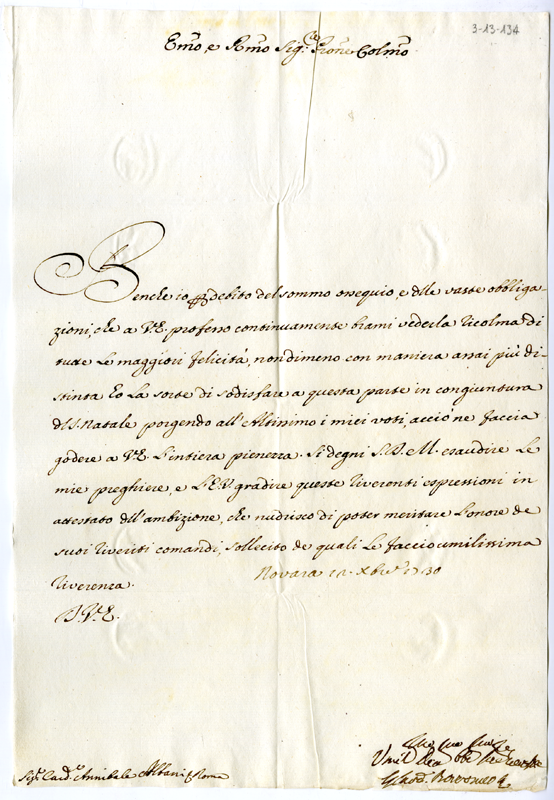 3-13-134
Em̃o, e Rm̃o Sig.re Pron̄e Colm̃o
Benche io per debito del sommo ossequio, e dlle vaste obbliga-
zioni, che a V.E. professo continuamente brami vederla ricolma di
tutte le maggiori felicità, nondimeno con maniera assai più di-
stinta ho la sorte di sodisfare a questa parte in congiuntura
dl S. Natale porgendo all'Altissimo i miei voti, acciò ne faccia
godere a V.E. l'intiera pienezza. Si degni S.D.M. esaudire le
mie preghiere, e l'E.V. gradire queste riverenti espressioni in
attestato dll'ambizione, che nudrisco di poter meritare l'onore de
suoi riveriti comandi, sollecito de quali le faccio umilissima
riverenza. Novara 12. Xbre 1730
D.V.E.
Sig.r Card.e Annibale Albani Roma